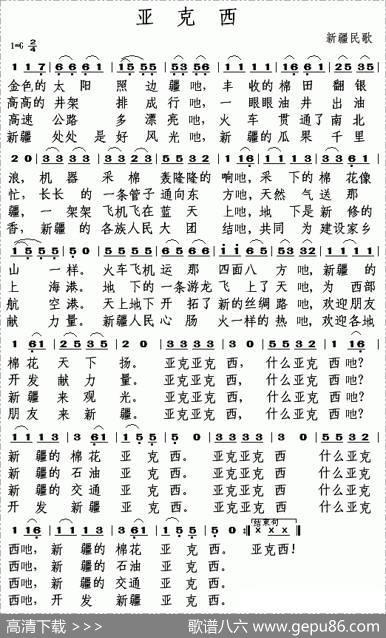 亚克西
1=G 2/4
新疆民歌
1 1 7 6 6 6 1 1 5 5 5 3 5 6 1 1 6 1 6 2 5 3 5
金色的 太 阳 照 边疆吔, 丰 收的 棉 田 翻银
高高的 井架 排 成行吔, 一 眼眼油 井 出油
高速 公路 多 漂亮吔, 火 车 贯 通了南北
新疆 处处 是 好 风光吔, 新疆的 瓜果 千里
浪, 机器 采棉 轰隆隆的 响吔, 采 下的 棉花像
忙, 长长 的 一条管子 通向东 方吔, 天然 气送 那
疆, 一 架架 飞机飞在 蓝天 上吔, 地 下是 新修 的
香, 新疆的 各族人民 大团 结吔, 共同 为 建设家乡
山 一样。 火车飞机 运 那 四面八 方吔, 新疆 的
上 海港。 地下 的 一条游龙 飞上了天 吔, 为 西部
航 空港。 天上地下 开 拓了 新的丝绸 路 吔, 欢迎朋友
献 力量。 新疆人民 心 肠 火一样的热 吔, 欢迎各地
1 6 1 2 5 3 5 1 2 0 3 3 3 3 3 0 5 5 3 2 1 1 6
棉花 天 下 扬。 亚克亚克 西, 什么亚克 西吔?
开发 献 力 量。 亚克亚克 西, 什么亚克 西吔?
新疆 来 观 光。 亚克亚克 西, 什么亚克 西吔?
朋友 来 新 疆。 亚克亚克 西, 什么亚克 西吔?
1 1 1 3 3 6 1 1 5 5 5 0 3 3 3 3 3 0 5 5 3 2
新 疆的 棉花 亚 克 西。 亚克亚克 西 什么亚克
新 疆的 石油 亚 克 西。 亚克亚克 西 什么亚克
新 疆的 交通 亚 克 西。 亚克亚克 西 什么亚克
开 发 新疆 亚 克 西。 亚克亚克 西 什么亚克
结束句
1 1 6 1 1 1 3 3 6 1 1 5 5 5 0 X X X
西吔, 新 疆的 棉花 亚 克 西。 亚克西!
西吔, 新 疆的 石油 亚 克 西。
西吔, 新 疆的 交通 亚 克 西。
西吔, 开 发 新疆 亚 克 西。
高清下载 >>> 歌谱八六 www.gepu86.com